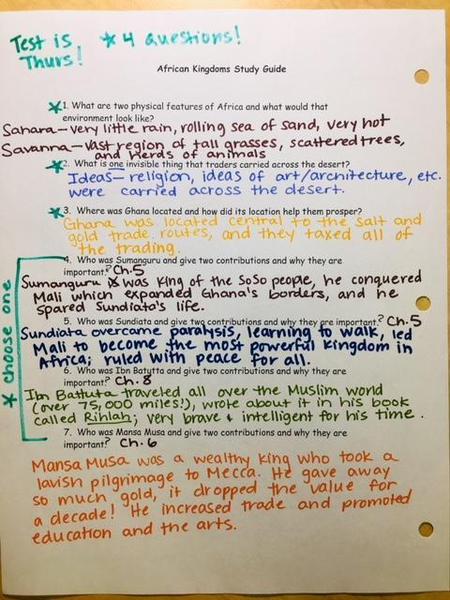 Test is * 4 questions!
Thurs!
African Kingdoms Study Guide
* 1. What are two physical features of Africa and what would that
environment look like?
Sahara - very little rain, rolling sea of sand, very hot
Savanna - vast region of tall grasses, scattered trees,
and herds of animals
* 2. What is one invisible thing that traders carried across the desert?
Ideas - religion, ideas of art/architecture, etc.
were carried across the desert.
* 3. Where was Ghana located and how did its location help them prosper?
Ghana was located central to the salt and
gold trade routes, and they taxed all of
the trading.
* choose one
4. Who was Sumanguru and give two contributions and why they are
important? Ch. 5
Sumanguru was King of the SoSo people, he conquered
Mali which expanded Ghana's borders, and he
spared Sundiata's life.
5. Who was Sundiata and give two contributions and why they are important? Ch. 5
Sundiata overcame paralysis, learning to walk, led
Mali to become the most powerful kingdom in
Africa; ruled with peace for all.
6. Who was Ibn Batutta and give two contributions and why they are
important? Ch. 8
Ibn Battuta traveled all over the Muslim world
(over 75,000 miles!), wrote about it in his book
called Rihlah; very brave + intelligent for his time.
7. Who was Mansa Musa and give two contributions and why they are
important? Ch. 6
Mansa Musa was a wealthy king who took a
lavish pilgrimage to Mecca. He gave away
so much gold, it dropped the value for
a decade! He increased trade and promoted
education and the arts.